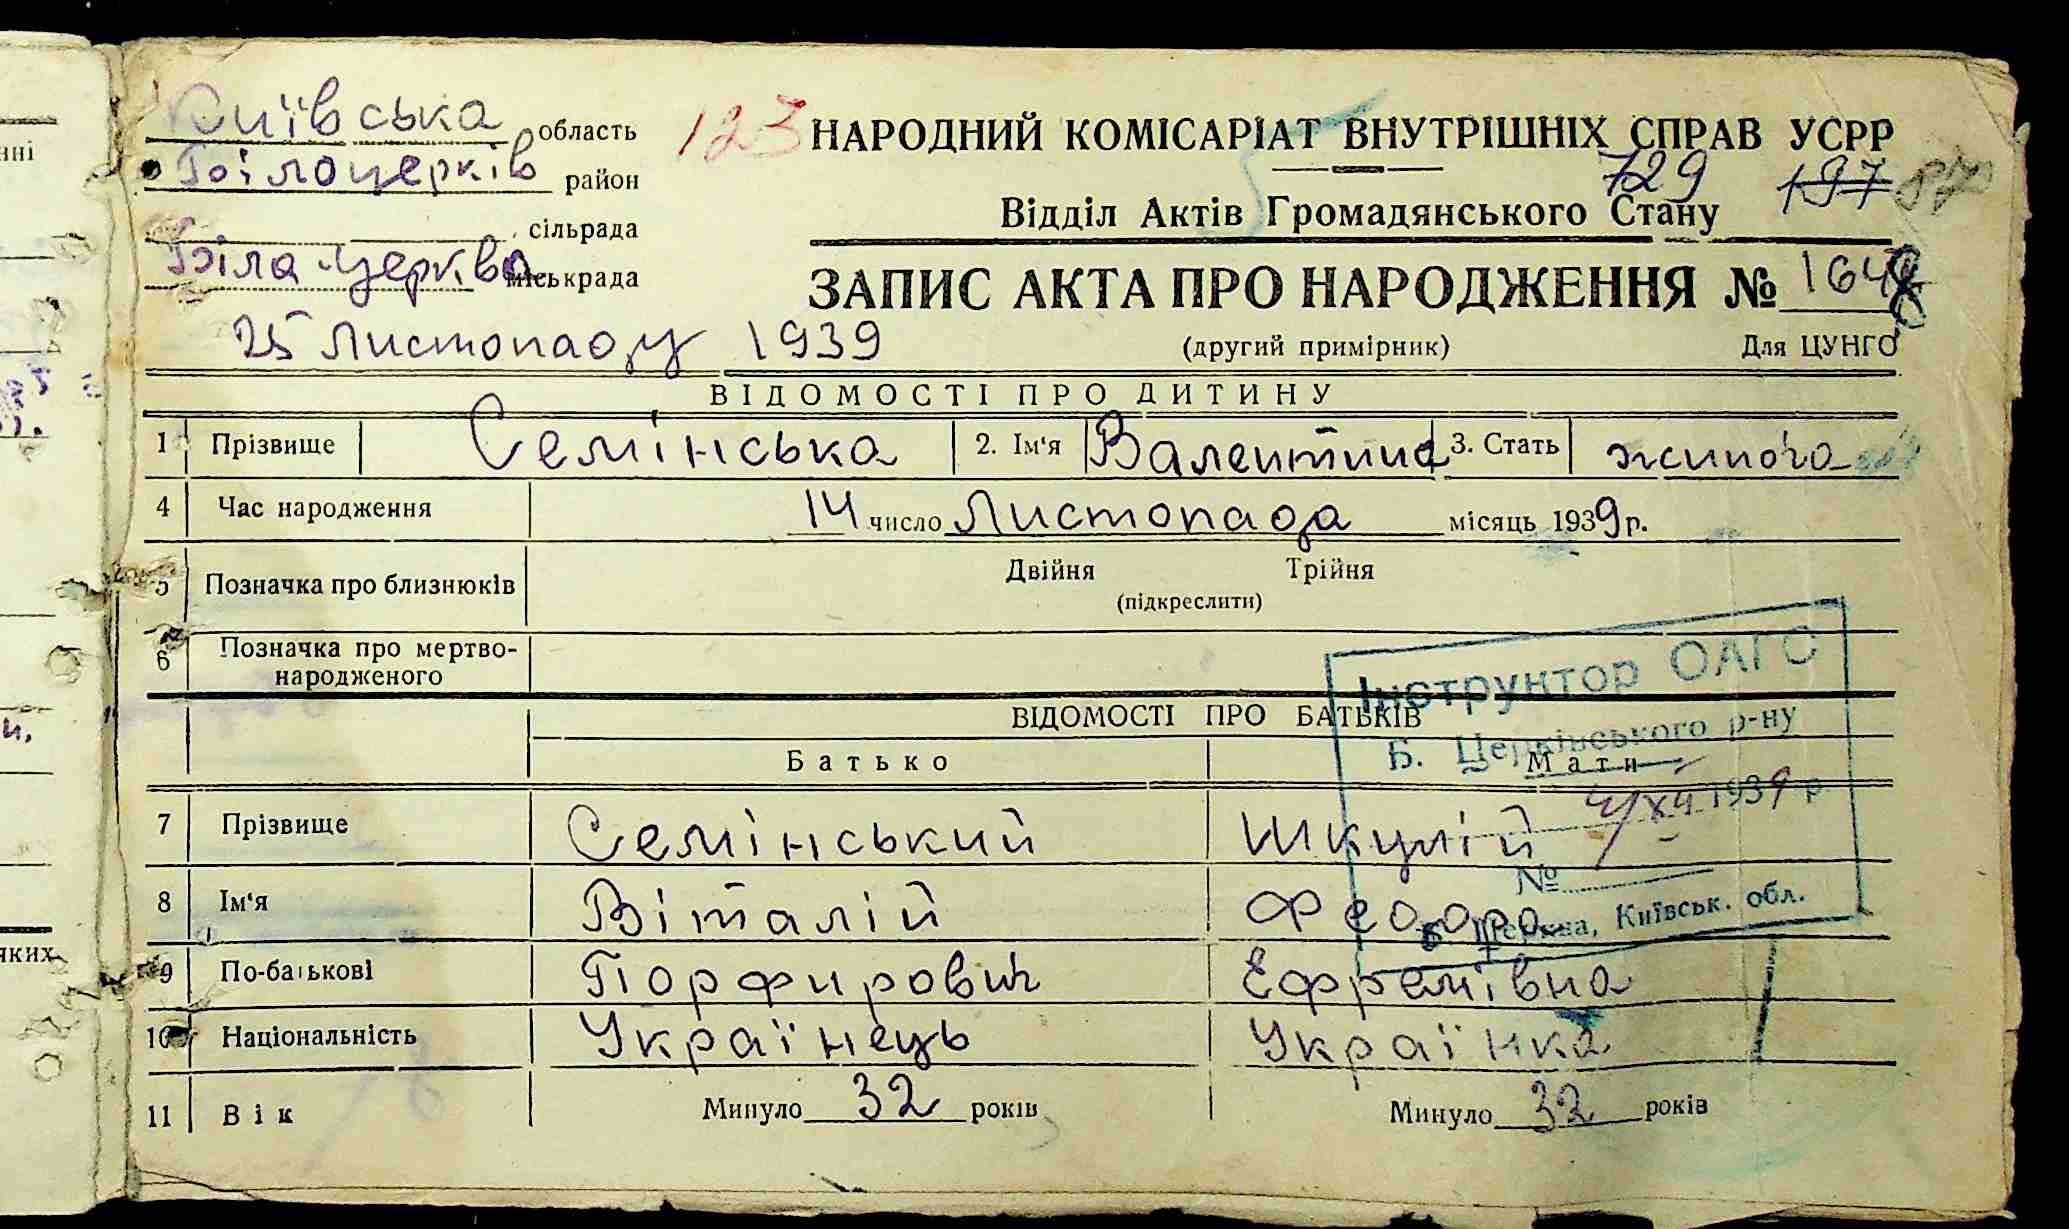 Київська область
123 НАРОДНИЙ КОМІСАРІАТ ВНУТРІШНІХ СПРАВ УСРР
Білоцерків район
729 197
Відділ Актів Громадянського Стану
сільрада
Біла-Церква міськрада
ЗАПИС АКТА ПРО НАРОДЖЕННЯ № 1648
25 Листопаду 1939
(другий примірник) Для ЦУНГО
ВІДОМОСТІ ПРО ДИТИНУ
1 Прізвище Семінська 2. Ім'я Валентина 3. Стать жиноча
4 Час народження 14 число Листопада місяць 1939 р.
5 Позначка про близнюків Двійня Трійня
(підкреслити)
6 Позначка про мертво-
народженого
Інструктор ОАГС
ВІДОМОСТІ ПРО БАТЬКІВ
Б. Церківського р-ну
Батько Мати
4/XII 1939 р
7 Прізвище Семінський Шкулій
№
8 Ім'я Віталій Федора
Б Церква, Київськ. обл.
9 По-батькові Порфирович Ефремівна
10 Національність Українець Українка
11 Вік Минуло 32 років Минуло 32 років
нні
и,
яких